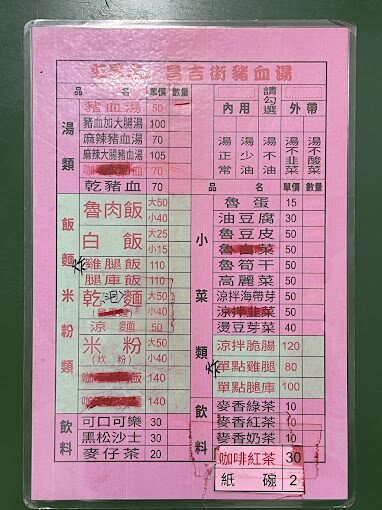 昌吉街豬血湯
品 名 單價 數量
湯類
豬血湯 50
豬血加大腸湯 100
麻辣豬血湯 70
麻辣大腸豬血湯 105
乾豬血 70
請勾選
內用 外帶
湯正常
湯少油
湯不油
湯不韭菜
湯不酸菜
飯麵米粉類
魯肉飯 大50 小40
白飯 大25 小15
炸雞腿飯 110
腿庫飯 110
乾麵 大50 小40
涼麵 50
米粉 大50 小40
(炊粉)
140
140
飲料
可口可樂 30
黑松沙士 30
麥仔茶 20
品 名 單價 數量
小菜類
魯蛋 15
油豆腐 30
魯豆皮 50
魯白菜 50
魯筍干 50
高麗菜 50
涼拌海帶芽 50
涼拌韭菜 50
燙豆芽菜 40
涼拌脆腸 120
炸單點雞腿 80
單點腿庫 100
飲料
麥香綠茶 10
麥香紅茶 10
麥香奶茶 10
咖啡紅茶 30
紙碗 2